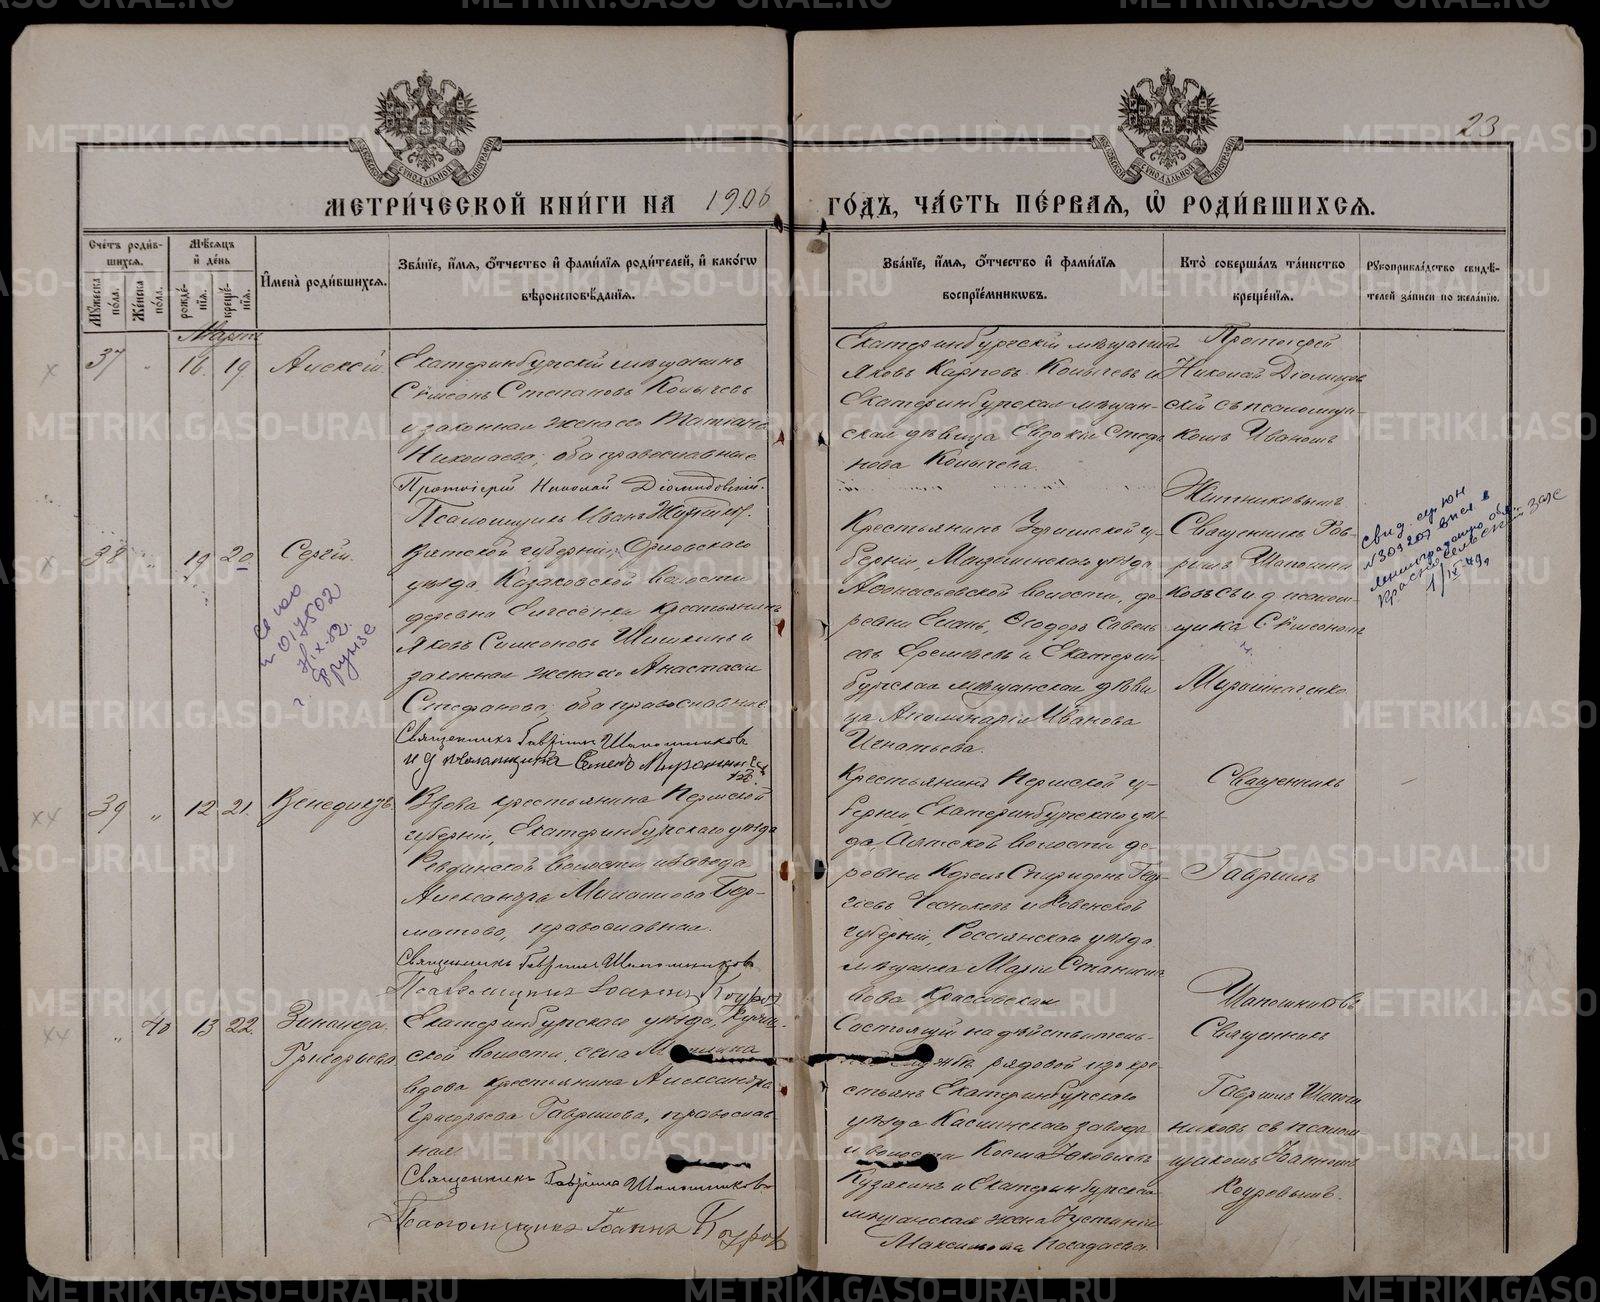 23
МЕТРИ́ЧЕСКОЙ КНИ́ГИ НА 1906 ГО́ДЪ, ЧА́СТЬ ПЕ́РВАЯ, Ѡ РОДИ́ВШИХСЯ.
Сче́тъ роди́в-
шихся.
Мꙋ́жеска по́ла.
Же́нска по́ла.
Мѣ́сяцъ и҆ де́нь
рожде́-
нїя.
креще́-
нїя.
И҆мена̀ роди́вшихся.
Зва́нїе, и҆́мя, ѻ҆́тчество и҆ фами́лїя роди́телей, и҆ како́гѡ
вѣроисповѣ́данїя.
Зва́нїе, и҆́мя, ѻ҆́тчество и҆ фами́лїя
воспрїе́мниковъ.
Кто̀ соверша́лъ та́инство
креще́нїя.
Рꙋкоприкла́дство свидѣ́-
телей за́писи по жела́нїю.
Марта
37
16.
19.
Алексѣй.
Екатеринбургскій мѣщанинъ
Сѵмеонъ Степановъ Копычевъ
и законная жена его Татіана
Николаева; оба православные.
Протоіерей Николай Діомидовскій.
Псаломщикъ Иванъ Житник.
Екатеринбургскій мѣщанинъ
Яковъ Карповъ Копычевъ и
Екатеринбургская мѣщан-
ская дѣвица Евдокія Степа
нова Копычева.
Протоіерей
Николай Діомидов
скій съ псаломщи-
комъ Иваномъ
Житниковымъ
38
19
20
Сергій.
Вятской губерніи, Орловскаго
уѣзда, Казаковской волости,
деревни Елесенки крестьянинъ
Яковъ Симеоновъ Шишкинъ и
законная жена его Анастасія
Стефанова; оба православные.
Священникъ Гавріилъ Шапошниковъ
и д псаломщика Семенъ Мирошниченко
Крестьянинъ Уфимской гу-
берніи, Мензелинскаго уѣзда
Афонасьевской волости, де-
ревни Елань, Ѳеодоръ Савель
евъ Еремѣевъ и Екатерин-
бургская мѣщанская дѣви
ца Аполинарія Иванова
Игнатьева.
Священникъ Гав-
ріилъ Шапошни
ковъ съ и. д. псалом-
щика Сѵмеономъ
Мирошниченко.
свид. серюн
№309207 выел в
ленинградскую обл.
Красносельский загс
1/IX-49г
№ 017502
г. Фрунзе
39
12
21.
Венедиктъ
Вдова крестьянина Пермской
губерніи, Екатеринбургскаго уѣзда
Ревдинской волости и завода
Александра Милашова Бор-
матова, православная.
Священникъ Гавріилъ Шапошниковъ
Псаломщикъ Іоаннъ Коуров
Крестьянинъ Пермской гу-
берніи, Екатеринбургскаго уѣз-
да, Аятской волости де-
ревни Корелъ Спиридонъ Геор
гіевъ Чесноковъ и Ковенской
губерніи, Россіянскаго уѣзда
мѣщанка Марія Станисла
вова Крассовская
Священникъ
Гавріилъ
Шапошниковъ
40
13
22.
Зинаида.
Григорьева
Екатеринбургскаго уѣзда,
ской волости, села
вдова крестьянина Александра
Григорьева Гаврилова, православ
ная.
Священникъ Гавріилъ Шапошниковъ
Псаломщикъ Іоаннъ Коуров
Состоящій на дѣйствитель-
ной службѣ рядовой изъ кре-
стьянъ Екатеринбургскаго
уѣзда Каслинскаго завода
и волости Косма Яковлевъ
Кузякинъ и Екатеринбургская
мѣщанская жена Іустинія
Максимова Посадаева.
Священникъ
Гавріилъ Шапош
никовъ съ псалом
щикомъ Іоанномъ
Коуровымъ.